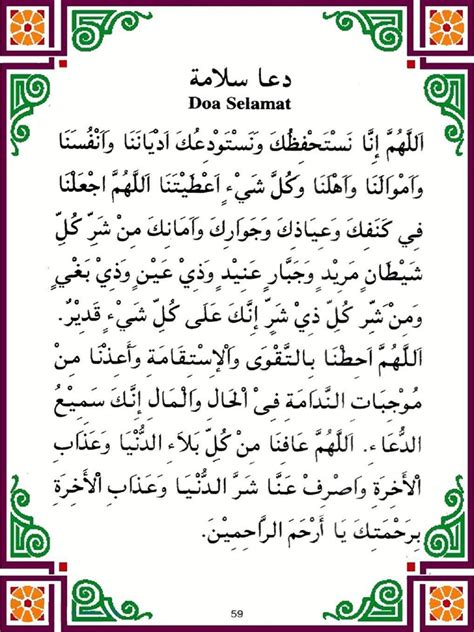 دعا سلامة
Doa Selamat
اَللَّهُمَّ إِنَّا نَسْتَحْفِظُكَ وَنَسْتَوْدِعُكَ اَدْيَانَنَا وَاَنْفُسَنَا
وَاَمْوَالَنَا وَاَهْلَنَا وَكُلَّ شَيْءٍ اَعْطَيْتَنَا اَللَّهُمَّ اجْعَلْنَا
فِي كَنَفِكَ وَعِيَاذِكَ وَجِوَارِكَ وَاَمَانِكَ مِنْ شَرِّ كُلِّ
شَيْطَانٍ مَرِيْدٍ وَجَبَّارٍ عَنِيْدٍ وَذِيْ عَيْنٍ وَذِيْ بَغْيٍ
وَمِنْ شَرِّ كُلِّ ذِيْ شَرٍّ إِنَّكَ عَلَى كُلِّ شَيْءٍ قَدِيْرٌ.
اَللَّهُمَّ اَحِطْنَا بِالتَّقْوَى وَالْاِسْتِقَامَةِ وَأَعِذْنَا مِنْ
مُوْجِبَاتِ النَّدَامَةِ فِىْ الْحَالِ وَالْمَالِ إِنَّكَ سَمِيْعُ
الدُّعَاءِ. اَللَّهُمَّ عَافِنَا مِنْ كُلِّ بَلَاءِ الدُّنْيَا وَعَذَابِ
الْأَخِرَةِ وَاصْرِفْ عَنَّا شَرَّ الدُّنْيَا وَعَذَابَ الْأَخِرَةِ
بِرَحْمَتِكَ يَا أَرْحَمَ الرَّاحِمِيْنَ.
59